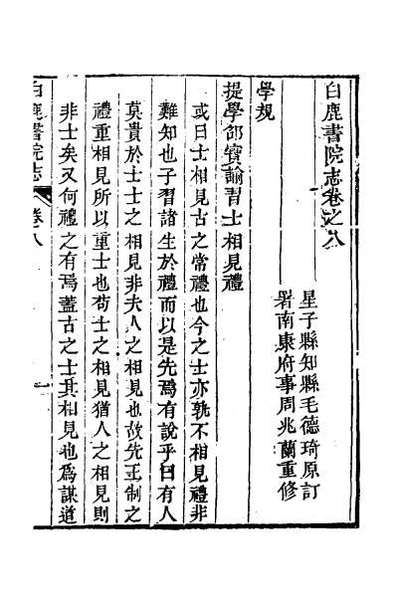 白鹿書院志卷之八
星子縣知縣毛德琦原訂
署南康府事周兆蘭重修
學規
提學邵寶諭習士相見禮
或曰士相見古之常禮也今之士亦孰不相見禮非
難知也子習諸生於禮而以是先焉有說乎曰有人
莫貴於士士之相見非夫人之相見也故先王制之
禮重相見所以重士也苟士之相見猶人之相見則
非士矣又何禮之有焉蓋古之士其相見也爲謀道
白鹿書院志
卷八
一